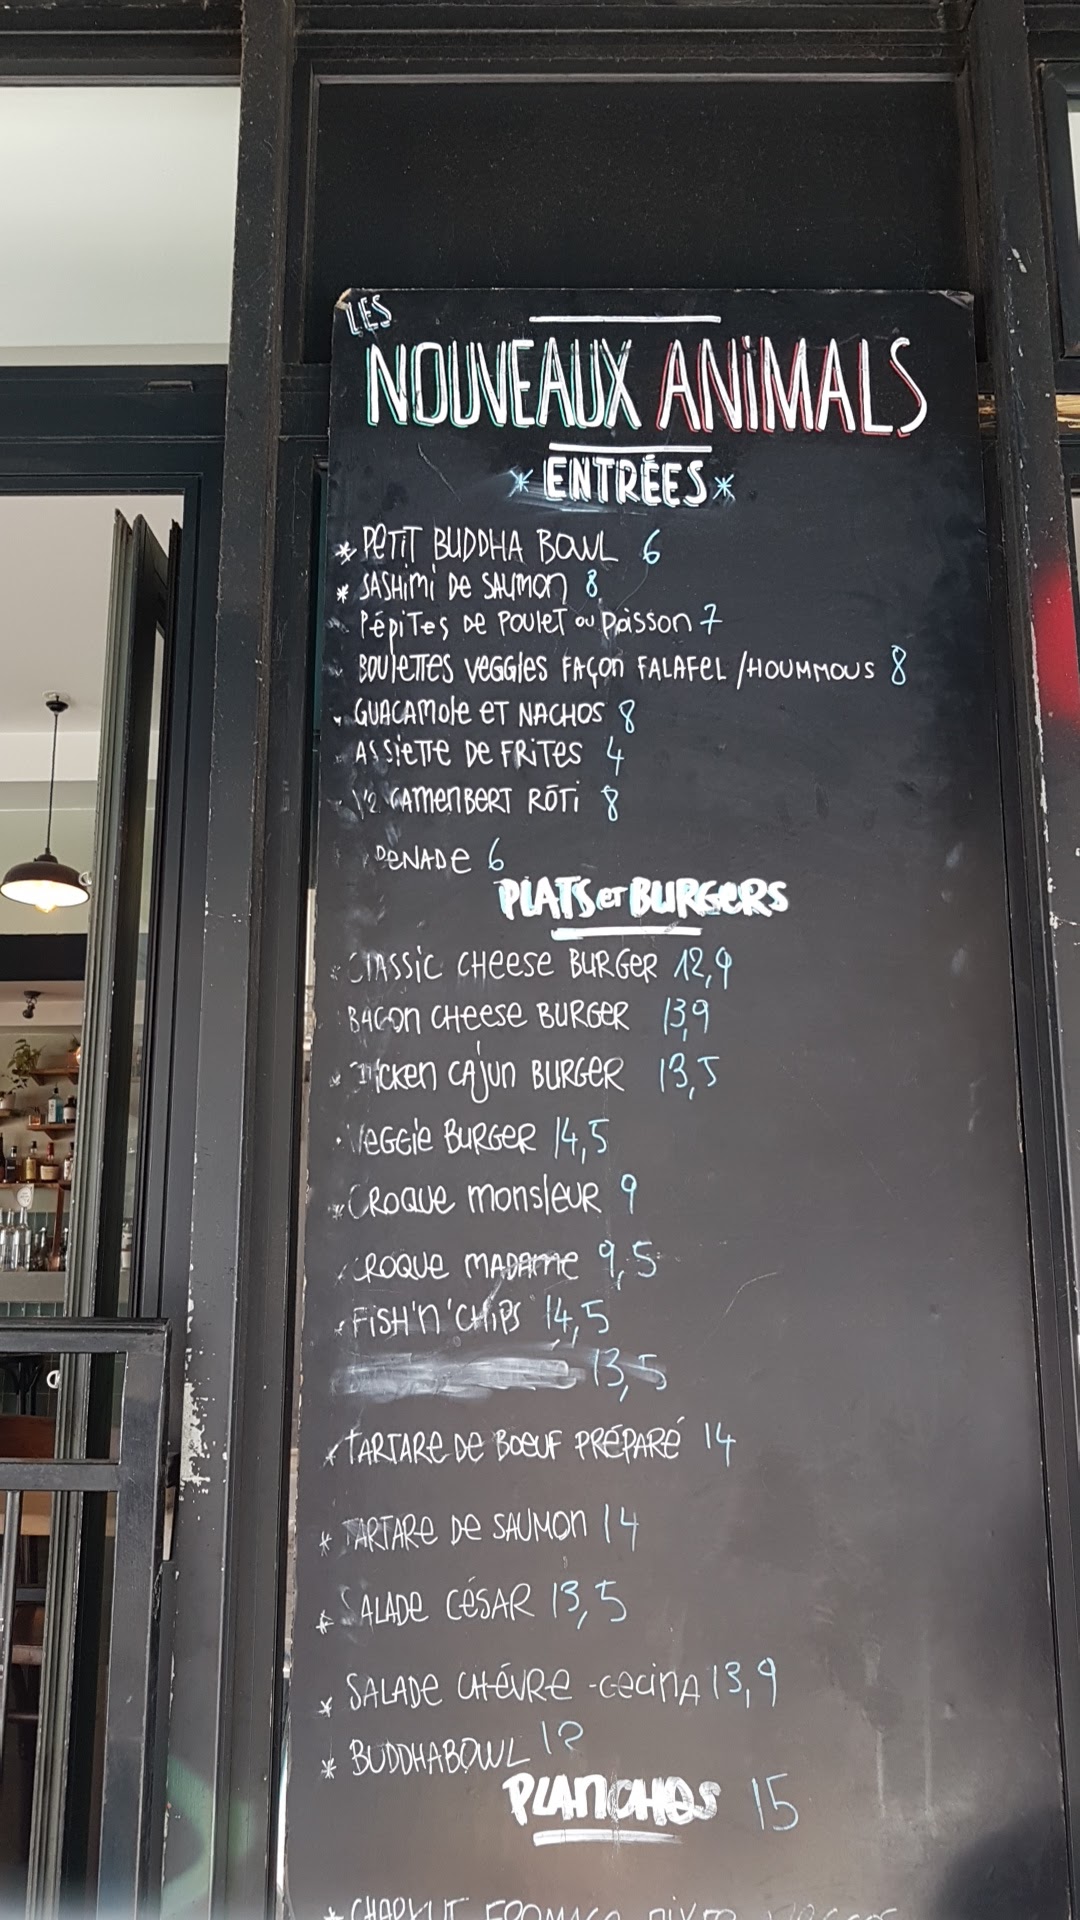 LES
NOUVEAUX ANIMALS
* ENTRÉES *
* PETIT BUDDHA BOWL 6
* SASHIMI DE SAUMON 8
PÉPITES DE POULET OU POISSON 7
BOULETTES VEGGIES FAÇON FALAFEL / HOUMMOUS 8
GUACAMOLE ET NACHOS 8
ASSIETTE DE FRITES 4
1/2 CAMEMBERT RÔTI 8
PENADE 6
PLATS ET BURGERS
CLASSIC CHEESE BURGER 12,9
BACON CHEESE BURGER 13,9
ICKEN CAJUN BURGER 13,5
VEGGIE BURGER 14,5
* CROQUE MONSIEUR 9
CROQUE MADAME 9,5
* FISH'N'CHIPS 14,5
13,5
* TARTARE DE BOEUF PRÉPARÉ 14
* TARTARE DE SAUMON 14
* SALADE CÉSAR 13,5
* SALADE CHÉVRE - CECINA 13,9
* BUDDHABOWL
PLANCHES 15